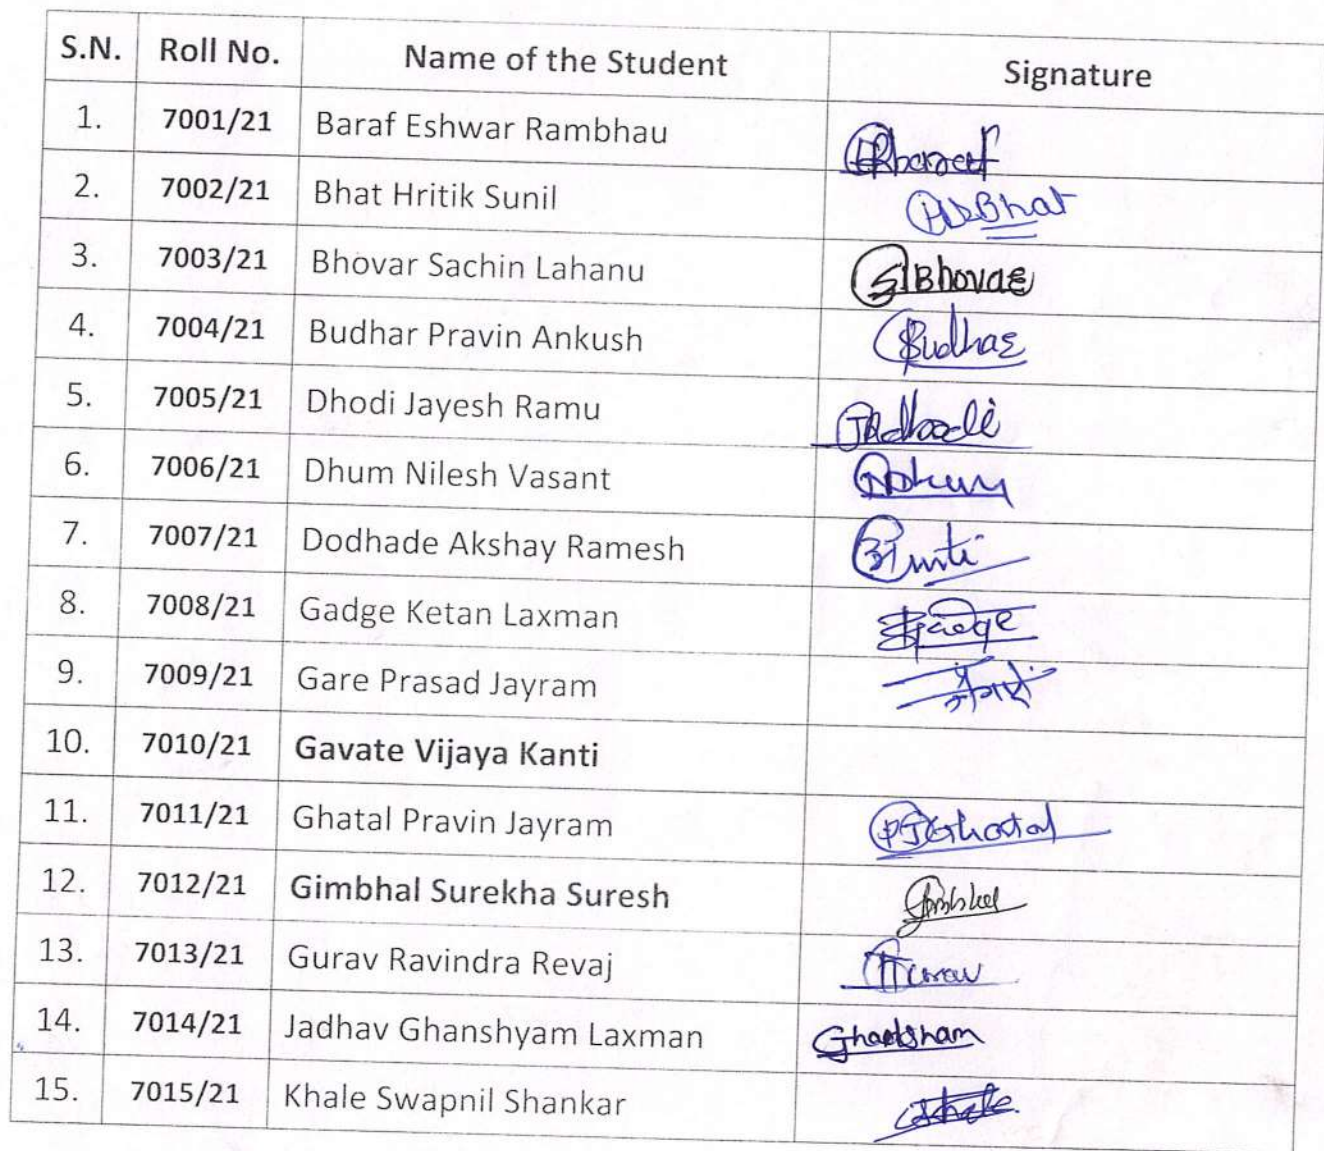 S.N. Roll No. Name of the Student Signature
1. 7001/21 Baraf Eshwar Rambhau
2. 7002/21 Bhat Hritik Sunil Bhat
3. 7003/21 Bhovar Sachin Lahanu
4. 7004/21 Budhar Pravin Ankush
5. 7005/21 Dhodi Jayesh Ramu
6. 7006/21 Dhum Nilesh Vasant
7. 7007/21 Dodhade Akshay Ramesh
8. 7008/21 Gadge Ketan Laxman
9. 7009/21 Gare Prasad Jayram
10. 7010/21 Gavate Vijaya Kanti
11. 7011/21 Ghatal Pravin Jayram
12. 7012/21 Gimbhal Surekha Suresh
13. 7013/21 Gurav Ravindra Revaj
14. 7014/21 Jadhav Ghanshyam Laxman
15. 7015/21 Khale Swapnil Shankar